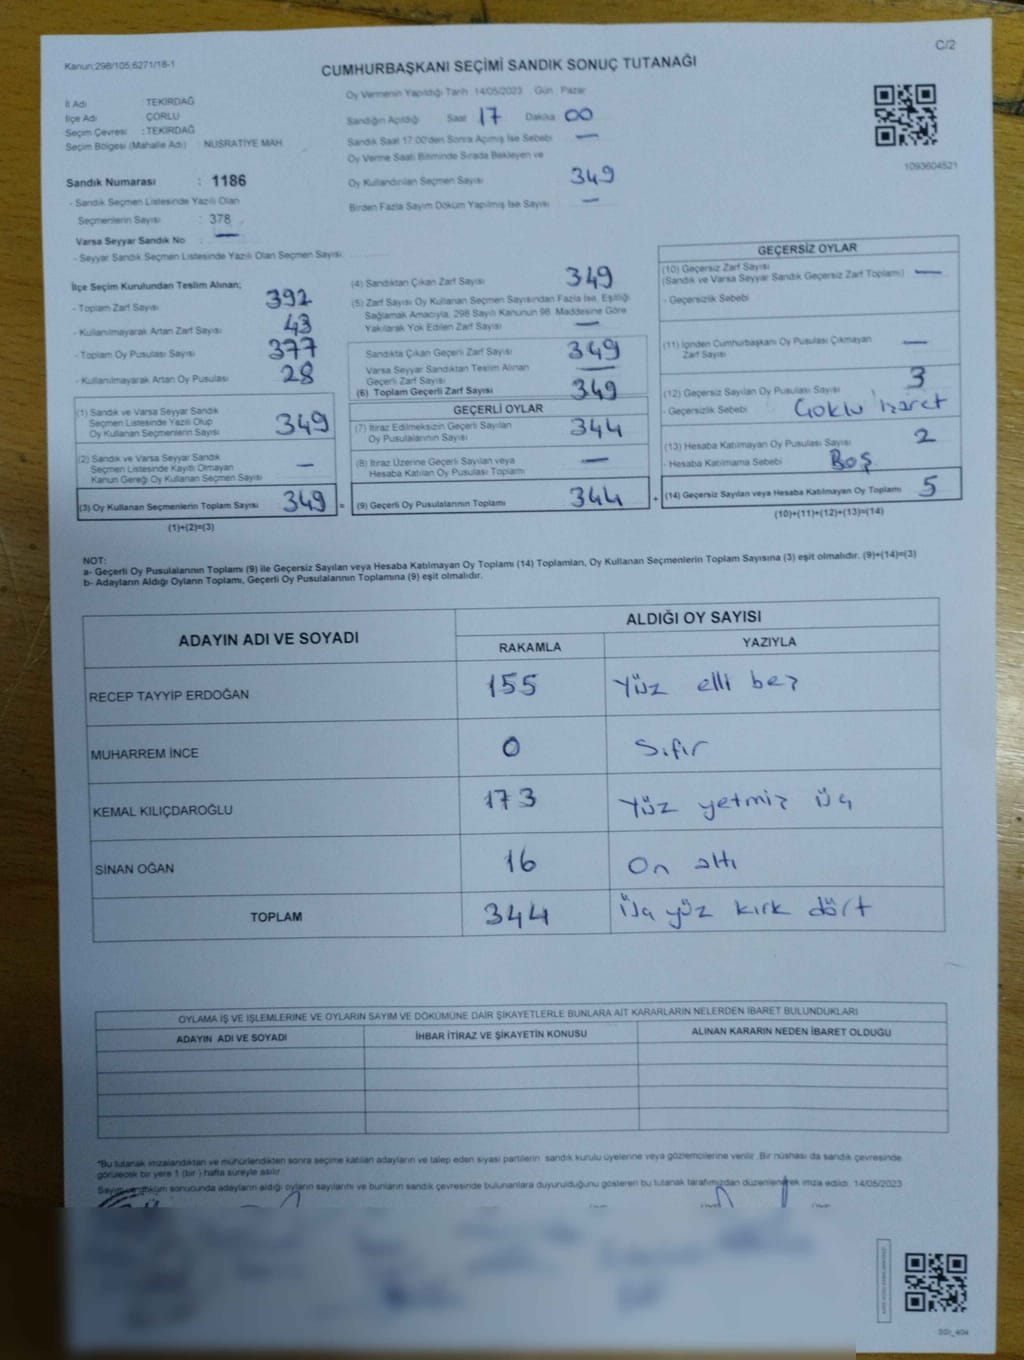 Kanun:298/105,6271/18-1
C/2
CUMHURBAŞKANI SEÇİMİ SANDIK SONUÇ TUTANAĞI
İl Adı : TEKİRDAĞ
İlçe Adı : ÇORLU
Seçim Çevresi : TEKİRDAĞ
Seçim Bölgesi (Mahalle Adı) : NUSRATİYE MAH.
Oy Vermenin Yapıldığı Tarih : 14/05/2023 Gün : Pazar
Sandığın Açıldığı Saat 17 Dakika 00
Sandık Saat 17:00'den Sonra Açılmış İse Sebebi —
Oy Verme Saati Bitiminde Sırada Bekleyen ve
Oy Kullandırılan Seçmen Sayısı 349
Birden Fazla Sayım Döküm Yapılmış İse Sayısı —
1093604521
Sandık Numarası : 1186
- Sandık Seçmen Listesinde Yazılı Olan
Seçmenlerin Sayısı : 378
Varsa Seyyar Sandık No : —
- Seyyar Sandık Seçmen Listesinde Yazılı Olan Seçmen Sayısı:
İlçe Seçim Kurulundan Teslim Alınan;
- Toplam Zarf Sayısı 392
- Kullanılmayarak Artan Zarf Sayısı 43
- Toplam Oy Pusulası Sayısı 377
- Kullanılmayarak Artan Oy Pusulası 28
(1) Sandık ve Varsa Seyyar Sandık
Seçmen Listesinde Yazılı Olup
Oy Kullanan Seçmenlerin Sayısı 349
(2) Sandık ve Varsa Seyyar Sandık
Seçmen Listesinde Kayıtlı Olmayan
Kanun Gereği Oy Kullanan Seçmen Sayısı —
(3) Oy Kullanan Seçmenlerin Toplam Sayısı 349 =
(1)+(2)=(3)
(4) Sandıktan Çıkan Zarf Sayısı 349
(5) Zarf Sayısı Oy Kullanan Seçmen Sayısından Fazla İse, Eşitliği
Sağlamak Amacıyla, 298 Sayılı Kanunun 98. Maddesine Göre
Yakılarak Yok Edilen Zarf Sayısı —
Sandıkta Çıkan Geçerli Zarf Sayısı 349
Varsa Seyyar Sandıktan Teslim Alınan
Geçerli Zarf Sayısı —
(6) Toplam Geçerli Zarf Sayısı 349
GEÇERLİ OYLAR
(7) İtiraz Edilmeksizin Geçerli Sayılan
Oy Pusulalarının Sayısı 344
(8) İtiraz Üzerine Geçerli Sayılan veya
Hesaba Katılan Oy Pusulası Toplamı —
(9) Geçerli Oy Pusulalarının Toplamı 344 +
GEÇERSİZ OYLAR
(10) Geçersiz Zarf Sayısı
(Sandık ve Varsa Seyyar Sandık Geçersiz Zarf Toplamı) —
- Geçersizlik Sebebi
(11) İçinden Cumhurbaşkanı Oy Pusulası Çıkmayan
Zarf Sayısı —
(12) Geçersiz Sayılan Oy Pusulası Sayısı 3
- Geçersizlik Sebebi Çoklu işaret
(13) Hesaba Katılmayan Oy Pusulası Sayısı 2
- Hesaba Katılmama Sebebi Boş
(14) Geçersiz Sayılan veya Hesaba Katılmayan Oy Toplamı 5
(10)+(11)+(12)+(13)=(14)
NOT:
a- Geçerli Oy Pusulalarının Toplamı (9) ile Geçersiz Sayılan veya Hesaba Katılmayan Oy Toplamı (14) Toplamları, Oy Kullanan Seçmenlerin Toplam Sayısına (3) eşit olmalıdır. (9)+(14)=(3)
b- Adayların Aldığı Oyların Toplamı, Geçerli Oy Pusulalarının Toplamına (9) eşit olmalıdır.
ADAYIN ADI VE SOYADI
ALDIĞI OY SAYISI
RAKAMLA YAZIYLA
RECEP TAYYİP ERDOĞAN 155 Yüz elli beş
MUHARREM İNCE 0 Sıfır
KEMAL KILIÇDAROĞLU 173 Yüz yetmiş üç
SİNAN OĞAN 16 On altı
TOPLAM 344 Üç yüz kırk dört
OYLAMA İŞ VE İŞLEMLERİNE VE OYLARIN SAYIM VE DÖKÜMÜNE DAİR ŞİKAYETLERLE BUNLARA AİT KARARLARIN NELERDEN İBARET BULUNDUKLARI
ADAYIN ADI VE SOYADI İHBAR İTİRAZ VE ŞİKAYETİN KONUSU ALINAN KARARIN NEDEN İBARET OLDUĞU
*Bu tutanak imzalandıktan ve mühürlendikten sonra seçime katılan adayların ve talep eden siyasi partilerin sandık kurulu üyelerine veya gözlemcilerine verilir. Bir nüshası da sandık çevresinde
görülecek bir yere 1 (bir ) hafta süreyle asılır.
Sayım ve döküm sonucunda adayların aldığı oyların sayılarını ve bunların sandık çevresinde bulunanlara duyurulduğunu gösteren bu tutanak tarafımızdan düzenlenerek imza edildi. 14/05/2023